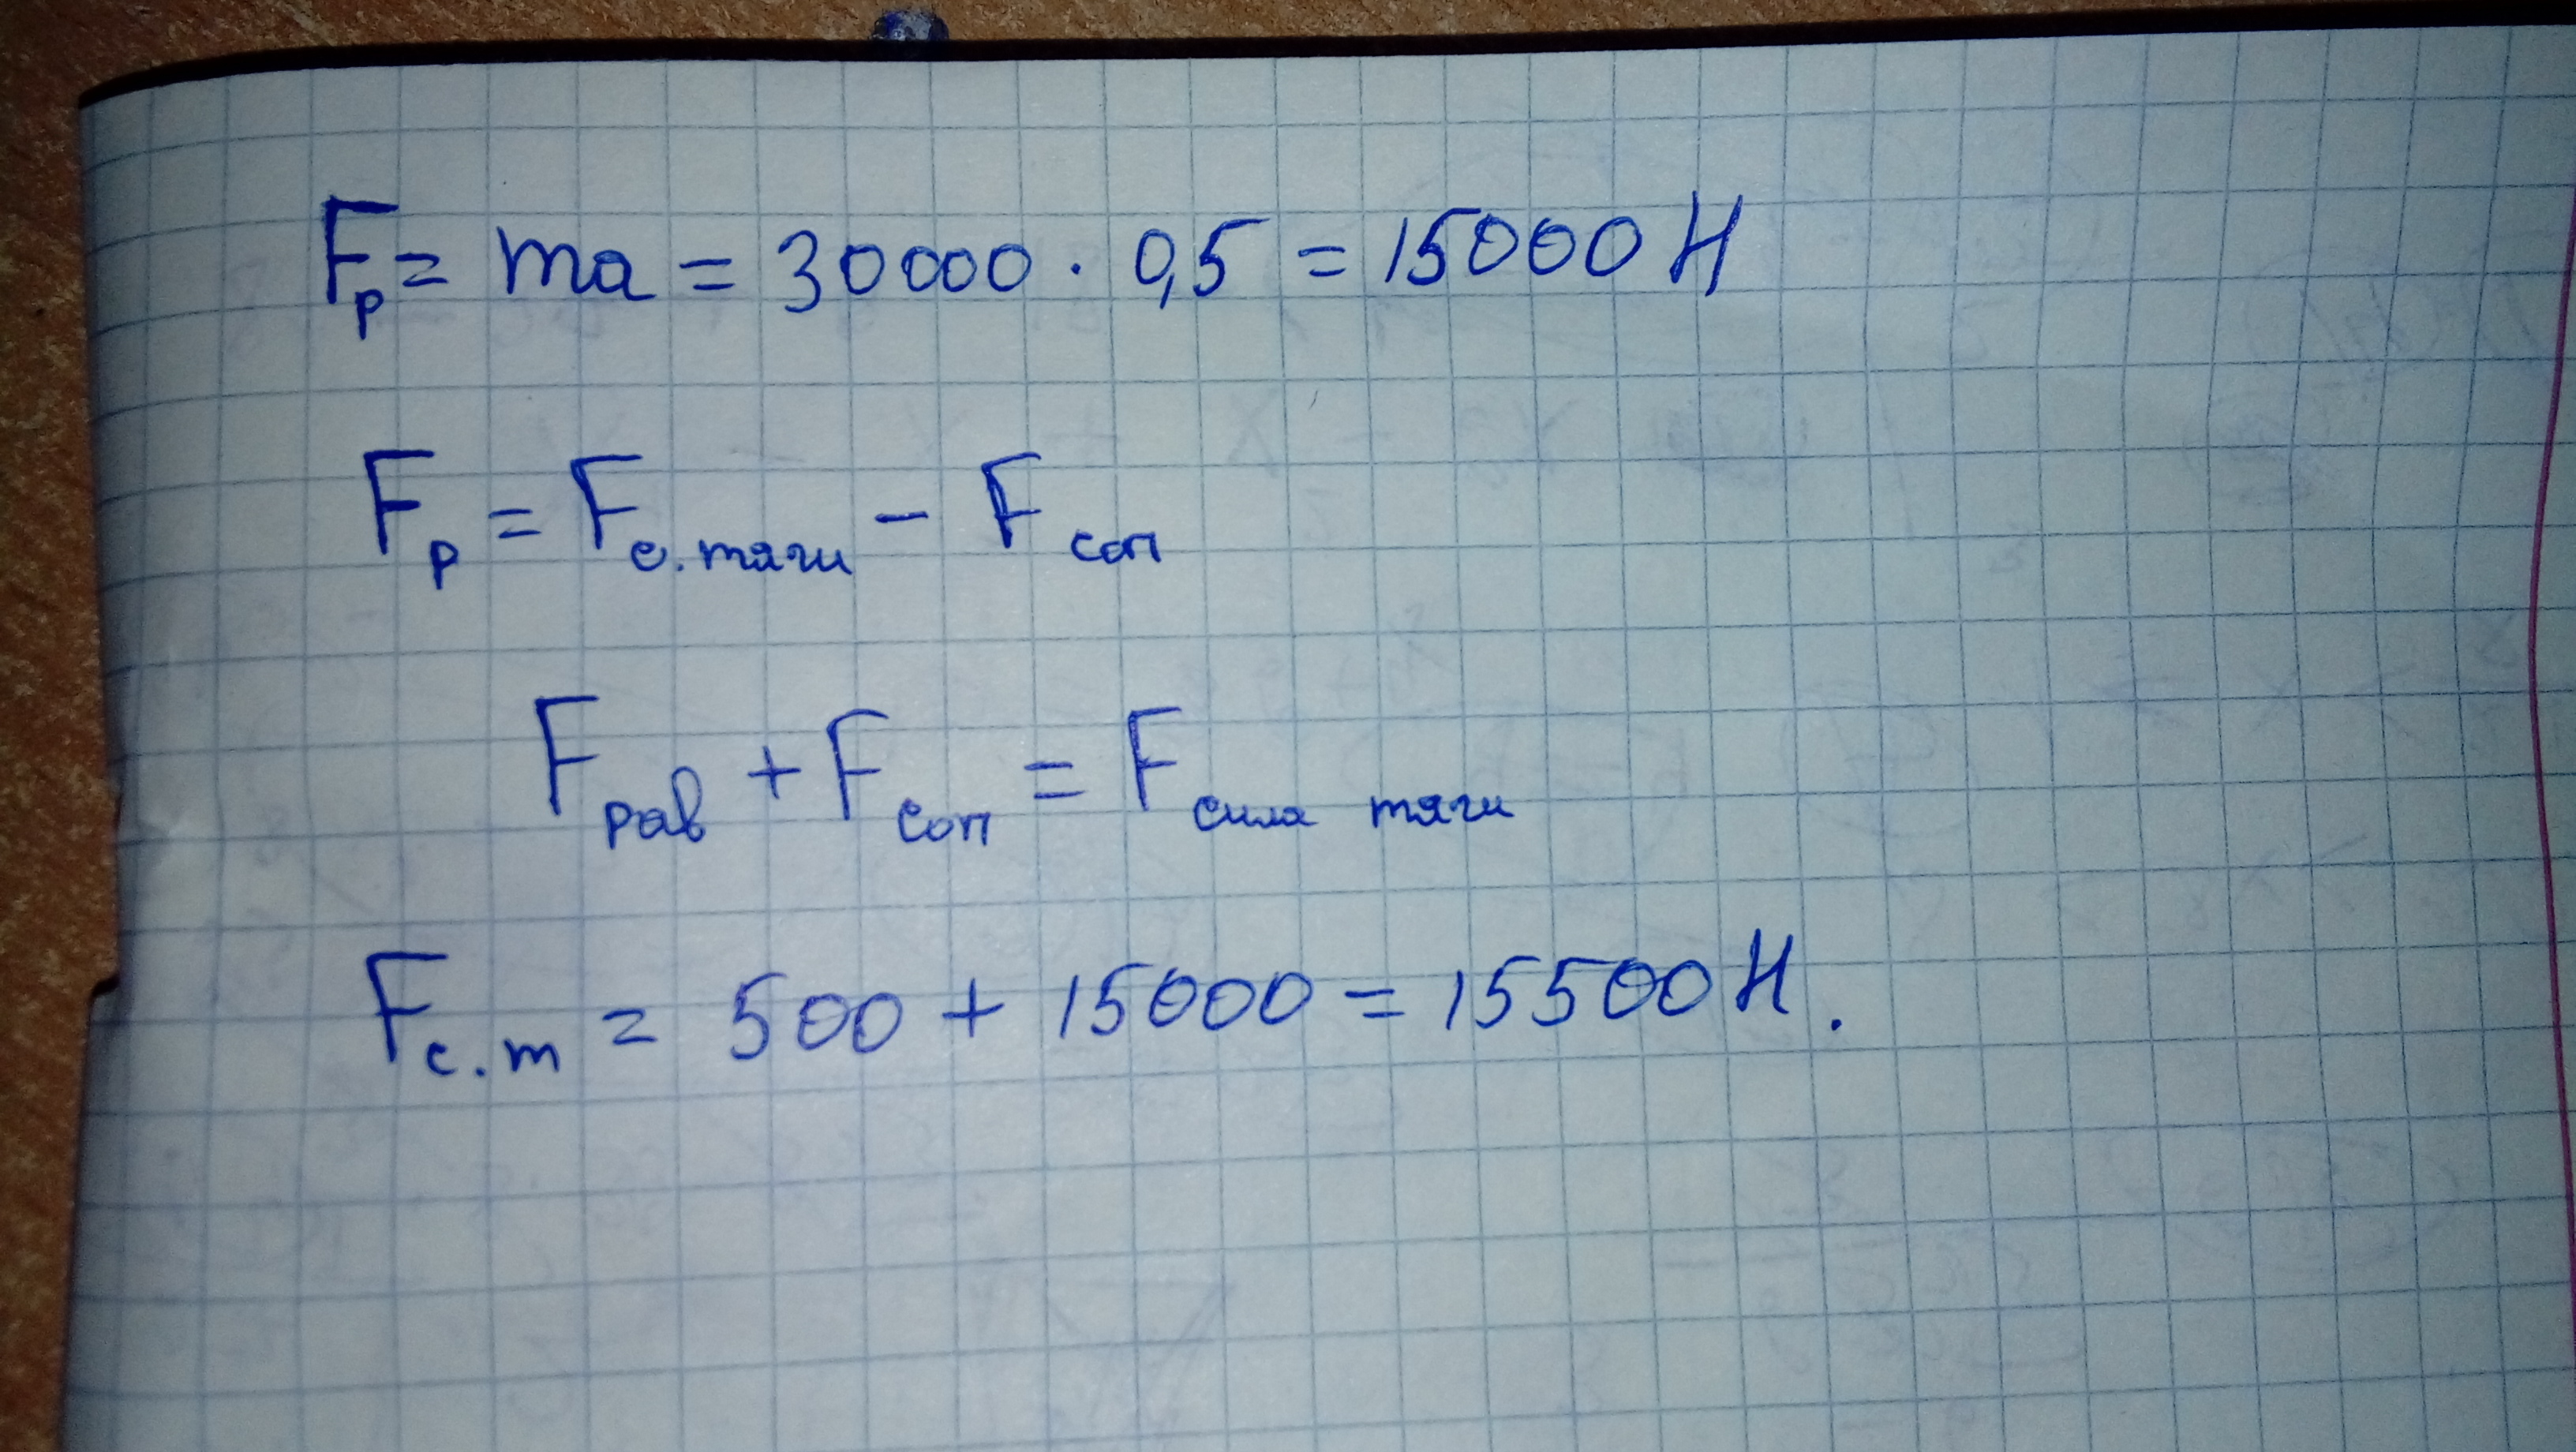 Fр = ma = 30000 · 0,5 = 15000 Н
Fр = Fс.тяги - Fсоп
Fрав + Fсоп = Fсила тяги
Fс.т = 500 + 15000 = 15500 Н.